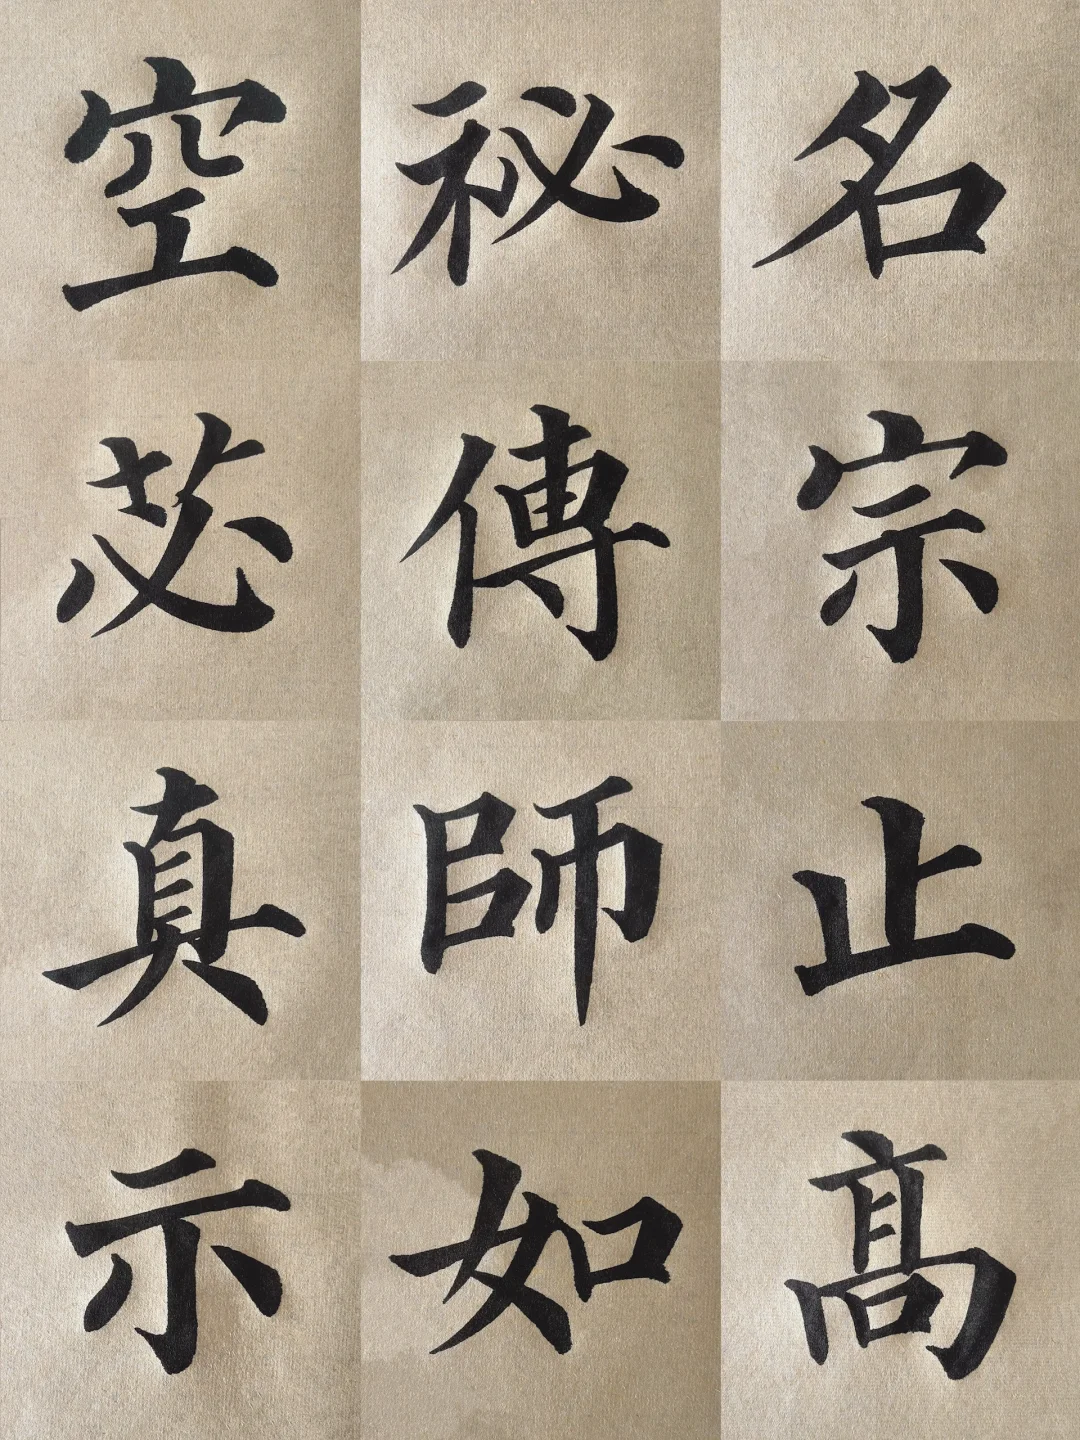 空秘名
苾傳宗
真師止
示如高